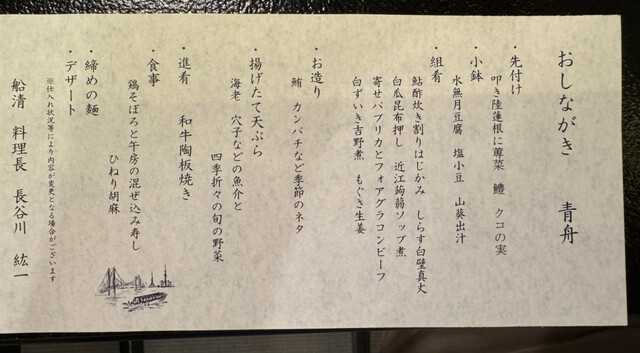 おしながき　青舟
・先付け
叩き陸蓮根に蓴菜　鱧　クコの実
・小鉢
水無月豆腐　塩小豆　山葵出汁
・組肴
鮎酢炊き割りはじかみ　しらす白壁真丈
白瓜昆布押し　近江蒟蒻ソップ煮
寄せパプリカとフォアグラコンビーフ
白ずいき吉野煮　もぐさ生姜
・お造り
鮪　カンパチなど季節のネタ
・揚げたて天ぷら
海老　穴子などの魚介と
四季折々の旬の野菜
・進肴　和牛陶板焼き
・食事
鶏そぼろと午房の混ぜ込み寿し
ひねり胡麻
・締めの麺
・デザート
※仕入れ状況等により内容が変更となる場合がございます
船清　料理長　長谷川　紘一